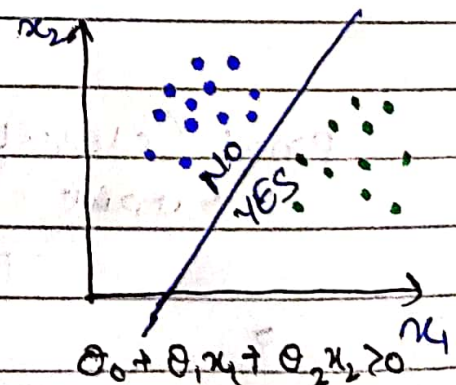 x₂
NO
YES
x₁
θ₀ + θ₁x₁ + θ₂x₂ ≥ 0